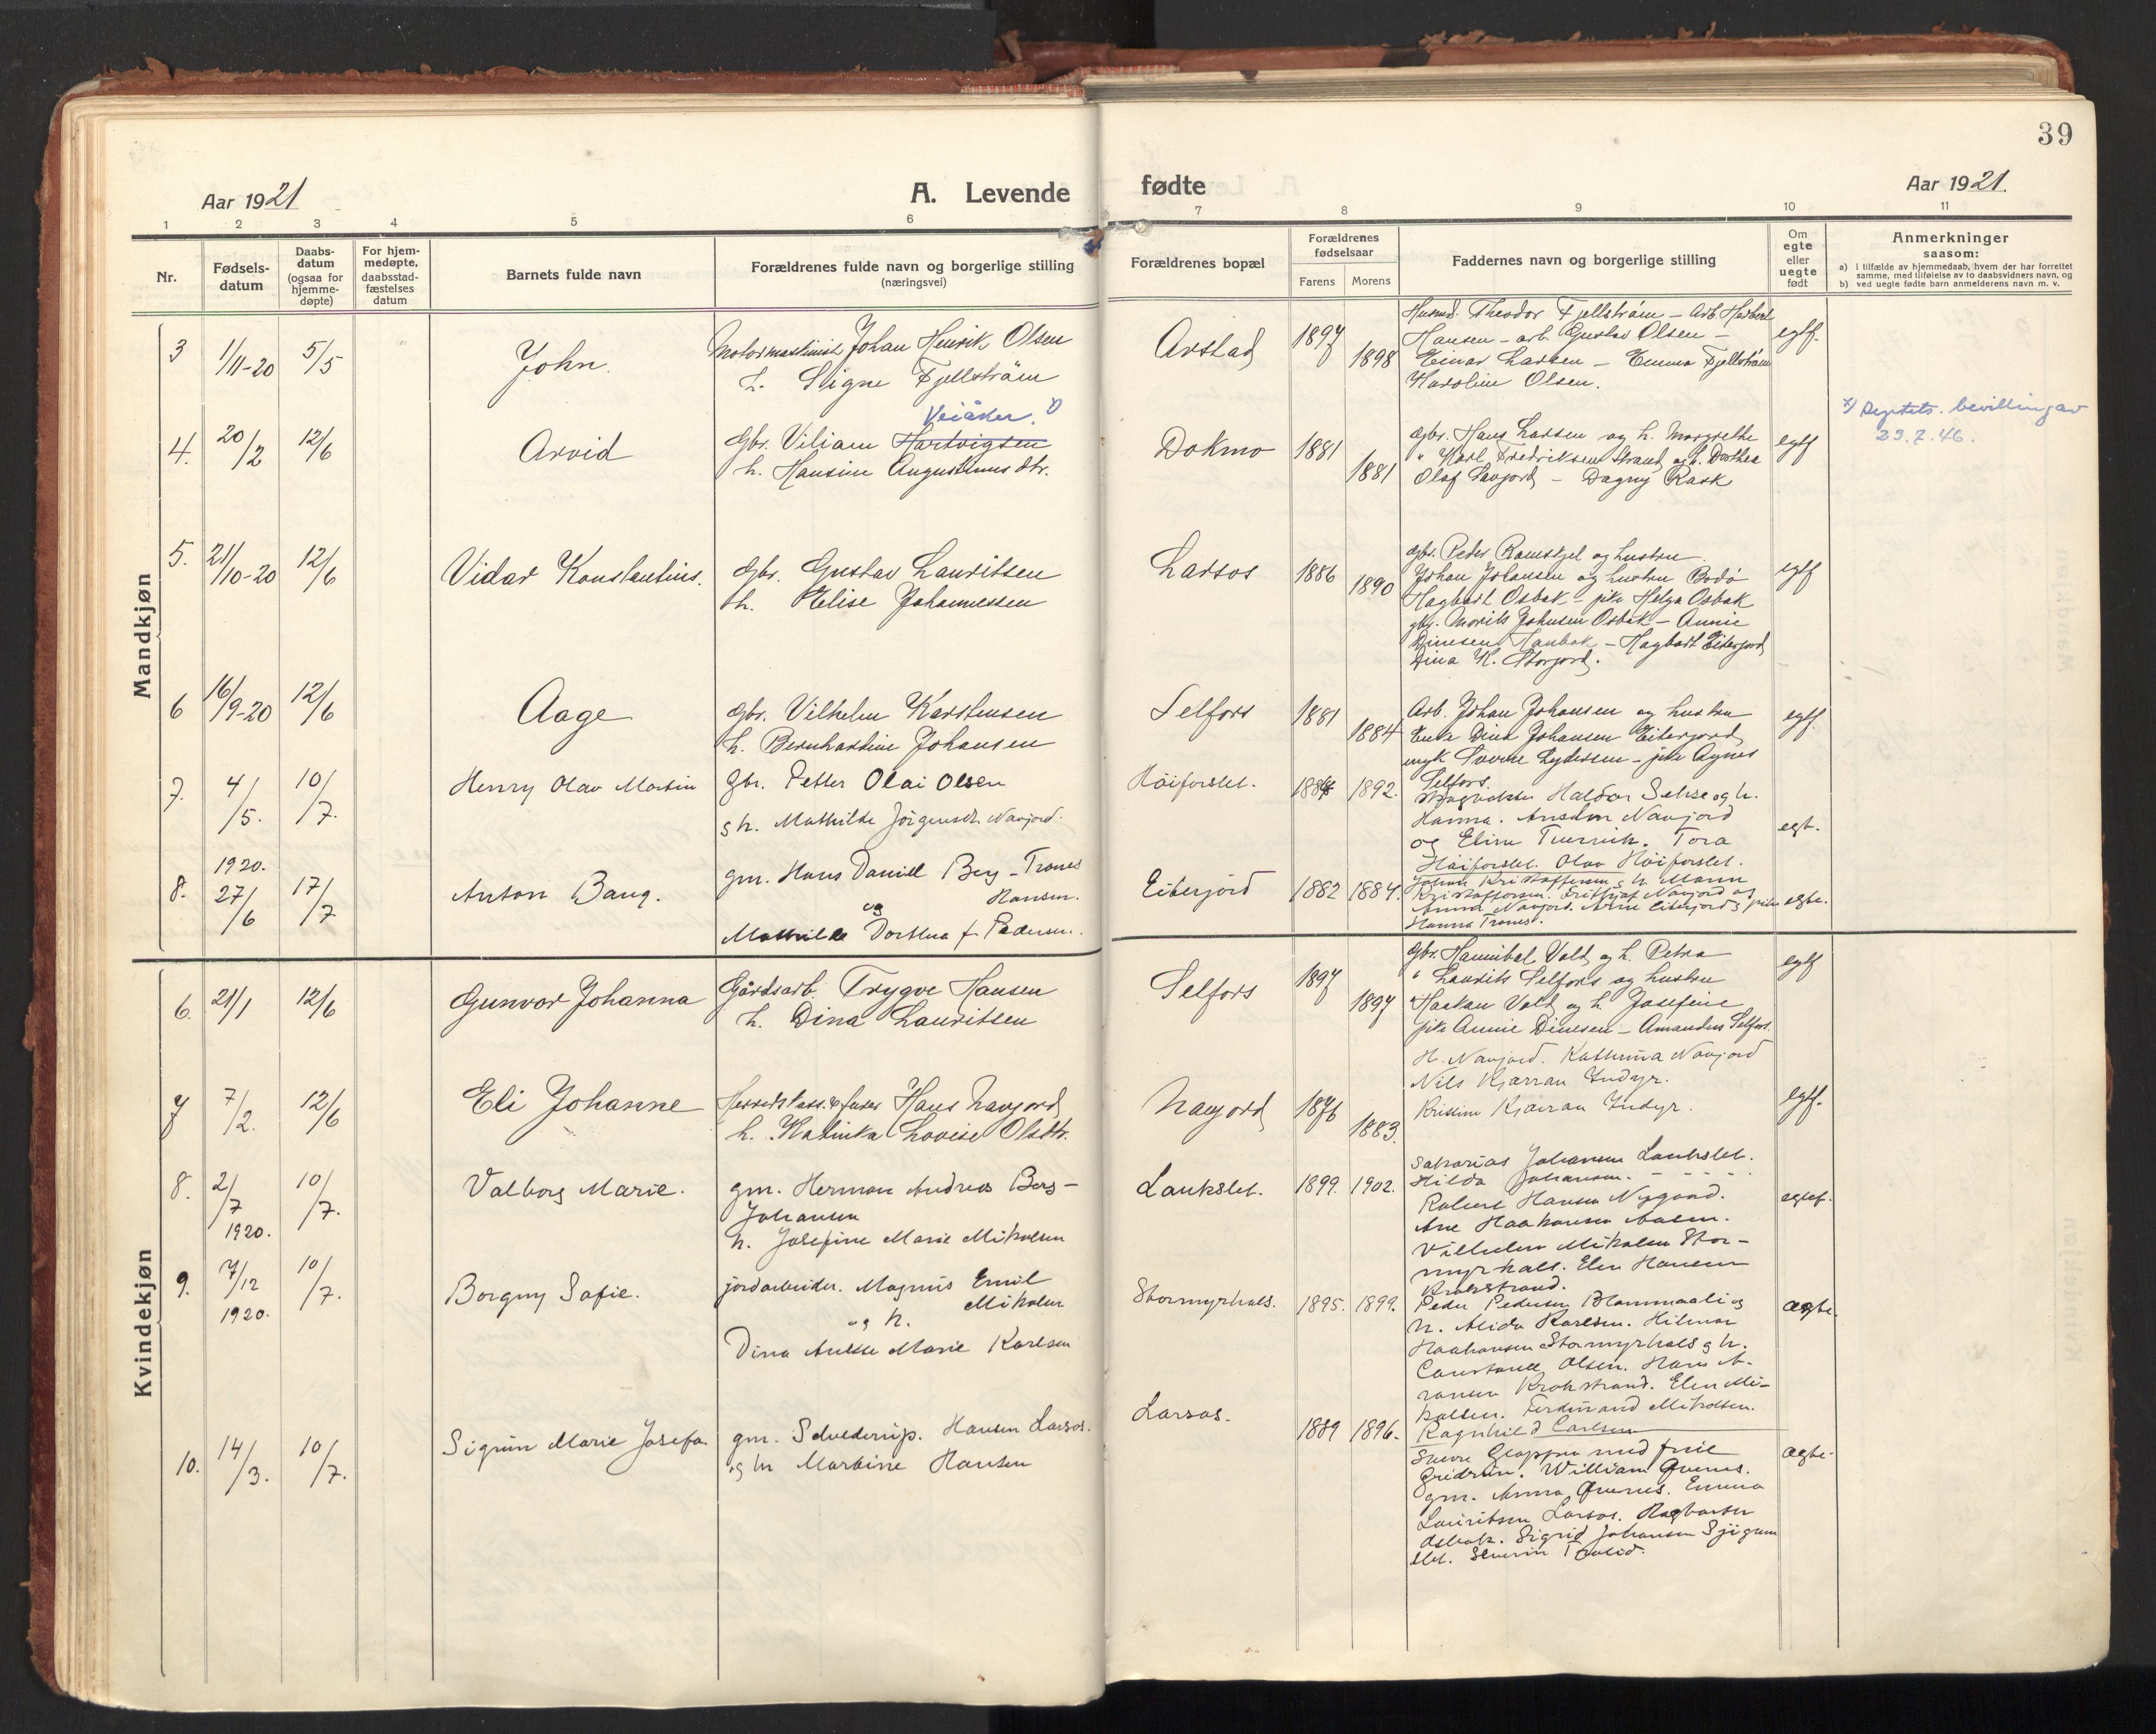 39
Aar 1921
A. Levende
fødte
Aar 1921.
1 2 3 4 5 6 7 8 9 10 11
Nr.
Fødsels-
datum
Daabs-
datum
(ogsaa for
hjemme-
døpte)
For hjem-
medøpte,
daabsstad-
fæstelses
datum
Barnets fulde navn
Forældrenes fulde navn og borgerlige stilling
(næringsvei)
Forældrenes bopæl
Forældrenes
fødselsaar
Farens
Morens
Faddernes navn og borgerlige stilling
Om
egte
eller
uegte
født
Anmerkninger
saasom:
a) i tilfælde av hjemmedaab, hvem der har forrettet
samme, med tilføielse av to daabsvidners navn, og
b) ved uegte fødte barn anmelderens navn m. v.
Mandkjøn
3 1/11-20 5/5 John.
Motormaskinist Johan Henrik Olsen
h. Signe Fjellström
Arstad 1897 1898
Husmd. Theodor Fjellström – Arb. Herbert
Hansen – arb. Gustav Olsen –
Einar Larsen – Emma Fjellström
Karoline Olsen.
egtf.
4. 20/2 12/6 Arvid
Veiåker. x)
Gbr. Viliam Hartvigsen
h. Hansine Augustinusdtr.
Dokmo 1881 1881
Gbr. Hans Larsen og h. Margrethe
" Karl Fredriksen Strand og h. Dorthea
Olaf Savjord – Dagny Rask
egtf
x) Deptets. bevilling av
23.7.46.
5. 21/10-20 12/6 Vidar Konstantius.
Gbr. Gustav Lauritsen
h. Elise Johannessen
Larsos 1886 1890
Gbr. Peder Ramskjel og hustru
Johan Johansen og hustru Bodö
Hagbart Osbak – pike Helga Osbak
gbr. Morits Johnsen Osbak – Annie
Dinesen – Hagbart Eiterjord
Dina K. Storjord.
egtf
6 16/9-20 12/6 Aage
Gbr. Vilhelm Karstensen
h. Bernhardine Johansen
Selfors 1881 1884
Arb. Johan Johansen og hustru
Enke Dina Johansen Eiterjord
ungk Sverre Lydersen – pike Agnes
Selfors.
egtf.
7. 4/5. 10/7. Henry Olav Martin
Gbr. Petter Olai Olsen
og h. Mathilde Jörgensdt. Navjord.
Höiforslet. 1892.
Haldor Sekse og h.
Hanna. Navjord
og Eline Tora
Höiforslet. Olav Höiforslet.
egt.
8. 1920. 27/6 17/7 Anton Bang.
gm. Hans Daniel Berg – Tranes
Hansen.
og
Mathilde Dorthea f. Pedersen.
Eiterjord 1882 1884.
Johan Kristoffersen og h. Marin
Kristoffersen. Fritjof Navjord og
Anna Navjord. Arne Eiterjord og pike
Hanna Tranes.
egte.
Kvindekjøn
6. 21/1 12/6 Gunvor Johanna
Gårdsarb. Trygve Hansen
h. Dina Lauritsen
Selfors 1897 1897
Gbr. Hannibal Vold og h. Petra
" Laurits Selfors og hustru
Haakan Vold og h. Josefine
pike Annie Dinesen – Amandus Selfors.
egtf
7 7/2. 12/6 Eli Johanne
Herredskass. & furer Hans Navjord
h. Katinka Lovise Olsdtr.
Navjord 1876 1883.
H. Navjord. Kathrina Navjord
Nils Kjærran Indyr.
Kristine Kjærran Indyr.
egtf.
8. 2/7 1920. 10/7. Valborg Marie.
gm. Herman Andreas Berg –
Johansen
h. Josefine Marie Mikalsen
Laukslet. 1899. 1902.
Sakarias Johansen Laukslet.
Hilda Johansen. – – –
Robert Hansen Nygaard.
Ane Haakonsen Aasen.
Vilhelm Mikalsen Stor-
myrhals. Elen Hansen
Krokstrand.
egtef.
9. 7/12 1920. 10/7. Borgny Sofie.
jordarbeider. Magnus Emil
Mikalsen
og h.
Dina Anette Marie Karlsen
Stormyrhals. 1895. 1899.
Peder Pedersen Blammaali og
h. Alida Karlsen. Hilmar
Haakonsen Stormyrhals og h.
Constance Olsen. Hans A-
ronsen Krokstrand. Elen Mi-
kalsen. Ferdinand Mikalsen.
Ragnhild Carlsen
ægte.
10. 14/3. 10/7. Sigrun Marie Josefa.
gm. Hansen Larsos.
og h Martine Hansen
Larsos. 1889 1896.
Sverre Glappen med frue
Gudrun. William Qvenes.
gm. Anna Qvenes. Emma
Lauritsen Larsos. Hagbarth
Osbak. Sigrid Johansen
Severin
ægte.